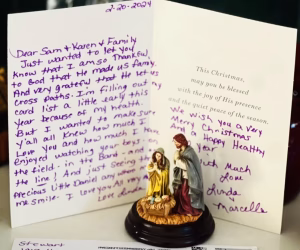 2-20-2024
Dear Sam & Karen & Family
Just wanted to let you
know that I am so Thankful
to God that He made us family.
And very grateful that He let us
cross paths. I'm filling out my
card list a little early this
year because of my health.
But I wanted to make sure
y'all all knew how much I
you and how much I have
Enjoyed watching your boys - on
the field - in the Band -
the line! And just seeing
precious Little Daniel any
me smile. I love y'all very
Love Linda
This Christmas,
may you be blessed
with the joy of His presence
and the quiet peace of the season.
We wish you a very
Merry Christmas
And a Happy Healthy
Year
Much
Love
Linda
Marcella
Stewart